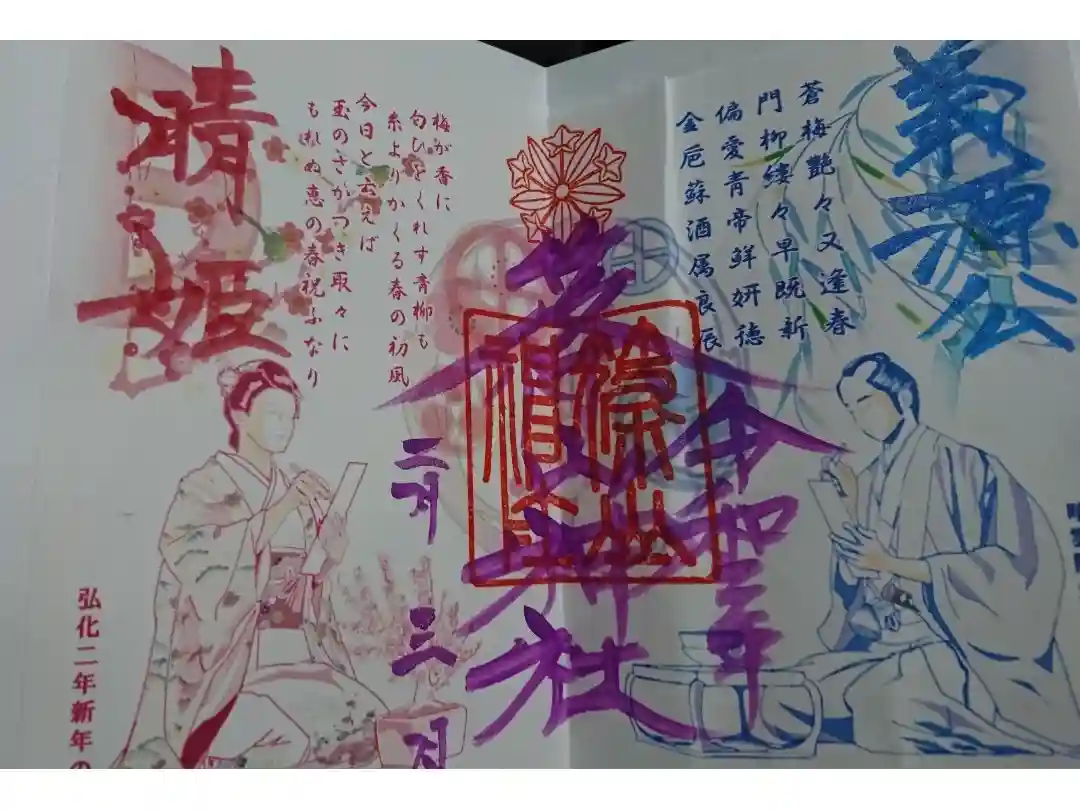 義源公
蒼梅艶々又逢春
門柳縷々早既新
偏愛青帝鮮妍徳
金卮蘇酒属良辰
令和三年
神社
二月三日
梅が香に
匂ひをくれす青柳も
糸よりかくる春の初風
今日と云えば
玉のさかつき取々に
もれぬ恵の春祝ふなり
晴姫
弘化二年新年の